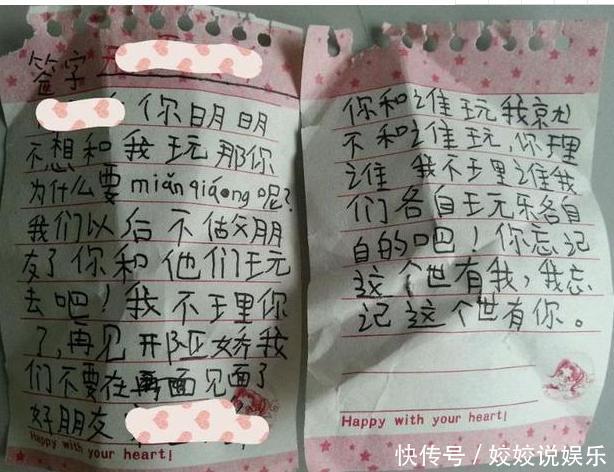 签字
你明明
不想和我玩那你
为什么要miǎnqiáng呢?
我们以后不做朋
友了你和他们玩
去吧!我不理你
了,再见
我
们不要在再面见面了
好朋友
Happy with your heart!
你和谁玩我就
不和谁玩,你理
谁我不理谁我
们各自玩乐各自
自的吧!你忘记
这个世有我,我忘
记这个世有你。
Happy with your heart!
快传号/姣姣说娱乐